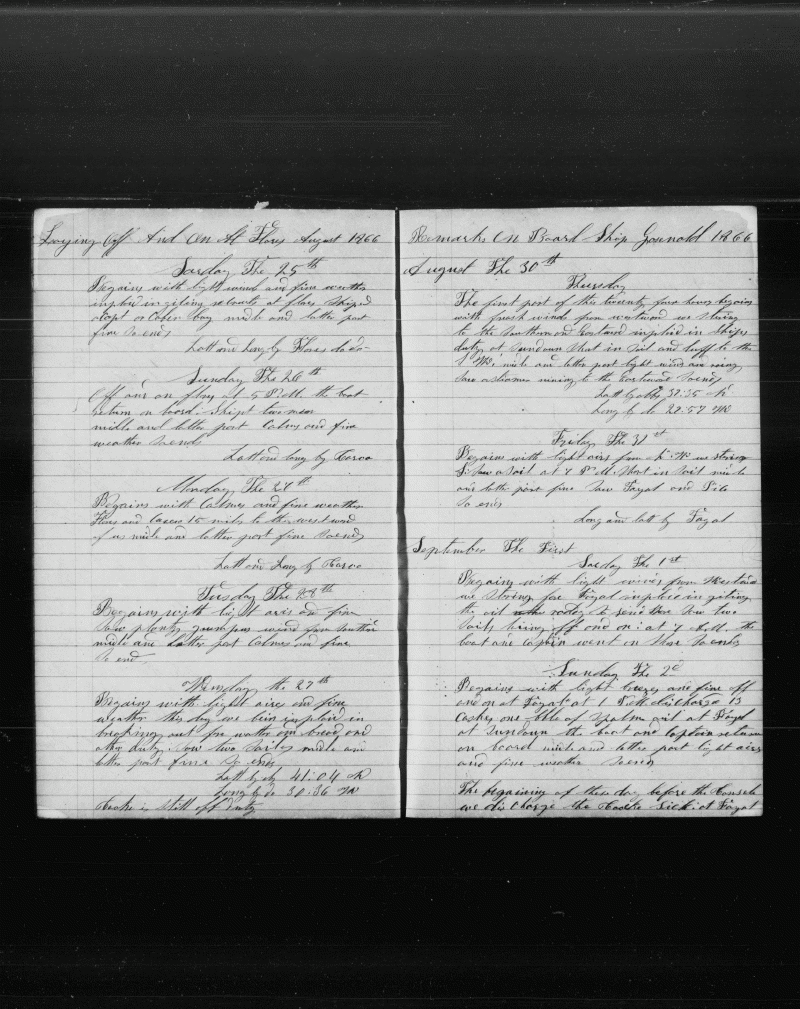 Laying Off And On At Flores August 1866
Sarday The 25th
Begains with light wind and fine weather
inploid in giting recruits at flores Shiped
one Cabin boy midle and latter part
fine So ends
Latt and Long by Flores do do
Sunday The 26th
Off and on flores at 5 P M the boat
return on board Shipt two men
midle and latter part Calms and fine
weather So ends
Latt and long by Corvo
Monday The 27th
Begains with Calmes and fine weather
Flores and Corvo 15 miles to the westward
of us midle and latter part fine So ends
Latt and Long by Corvo
Tusday The 28th
Begains with light airs and fine
Saw plenty grampus wind from Southard
midle and latter part Calmes and fine
So end
Wensday the 29th
Begains with light aires and fine
weather this day we been inploid in
breaking out for watter and bread and
other duty Saw two Sailes midle and
latter part fine So ends
Latt by ob 41:04 N
Long by do 30:36 W
Cooke is still off duty
Remarks On Board Ship Gosnold 1866
August The 30th
Thursday
The first part of this twenty four hours begains
with fresh winds from westward we stering
to the Southard and Eastard inploid in Ships
duty at Sundown Shut in Sail and luff to the
midle and latter part light winds and
Saw a Steamer to the Eastward So ends
Latt by ob 39:35 N
Long by do 29:57 W
Friday The 31st
Begains with light airs from N W we stering
S Saw a Sail at 7 P M Short in Sail midle
and latter part fine Saw Fayal and Pico
So ends
Long and latt by Fayal
September The First
Sarday The 1st
Begains with light winds from Westard
we stering for Fayal inploid in giting
the oil redey to send Shore Saw two
Sails laying off and on at 7 A M the
boat and Captin went on Shore So ends
Sunday The 2d
Begains with light breeze and fine off
and on at Fayal at 1 P M discharge 13
Caskes one bbls of Spalm oil at Fayal
at Sundown the boat and Captain return
on board midle and latter part light airs
and fine weather So ends
The begaining of these day before the Consele
we discharge the Cooke Sick at Fayal